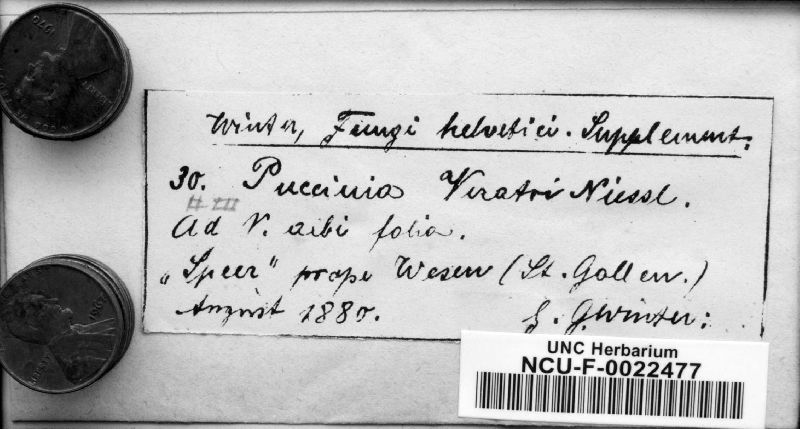 Winter, Fungi helvetici. Supplement.
30. Puccinia Veratri Niessl.
II III
Ad V. albi folia.
„Speer" prope Wesen (St. Gallen.)
August 1880. G. Winter.
UNC Herbarium
NCU-F-0022477
1970
1962